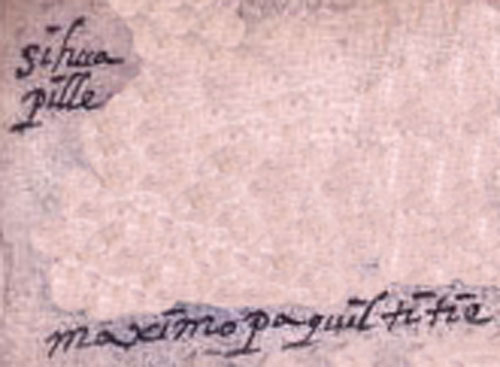 sihua
pille
maximo paquiltitie